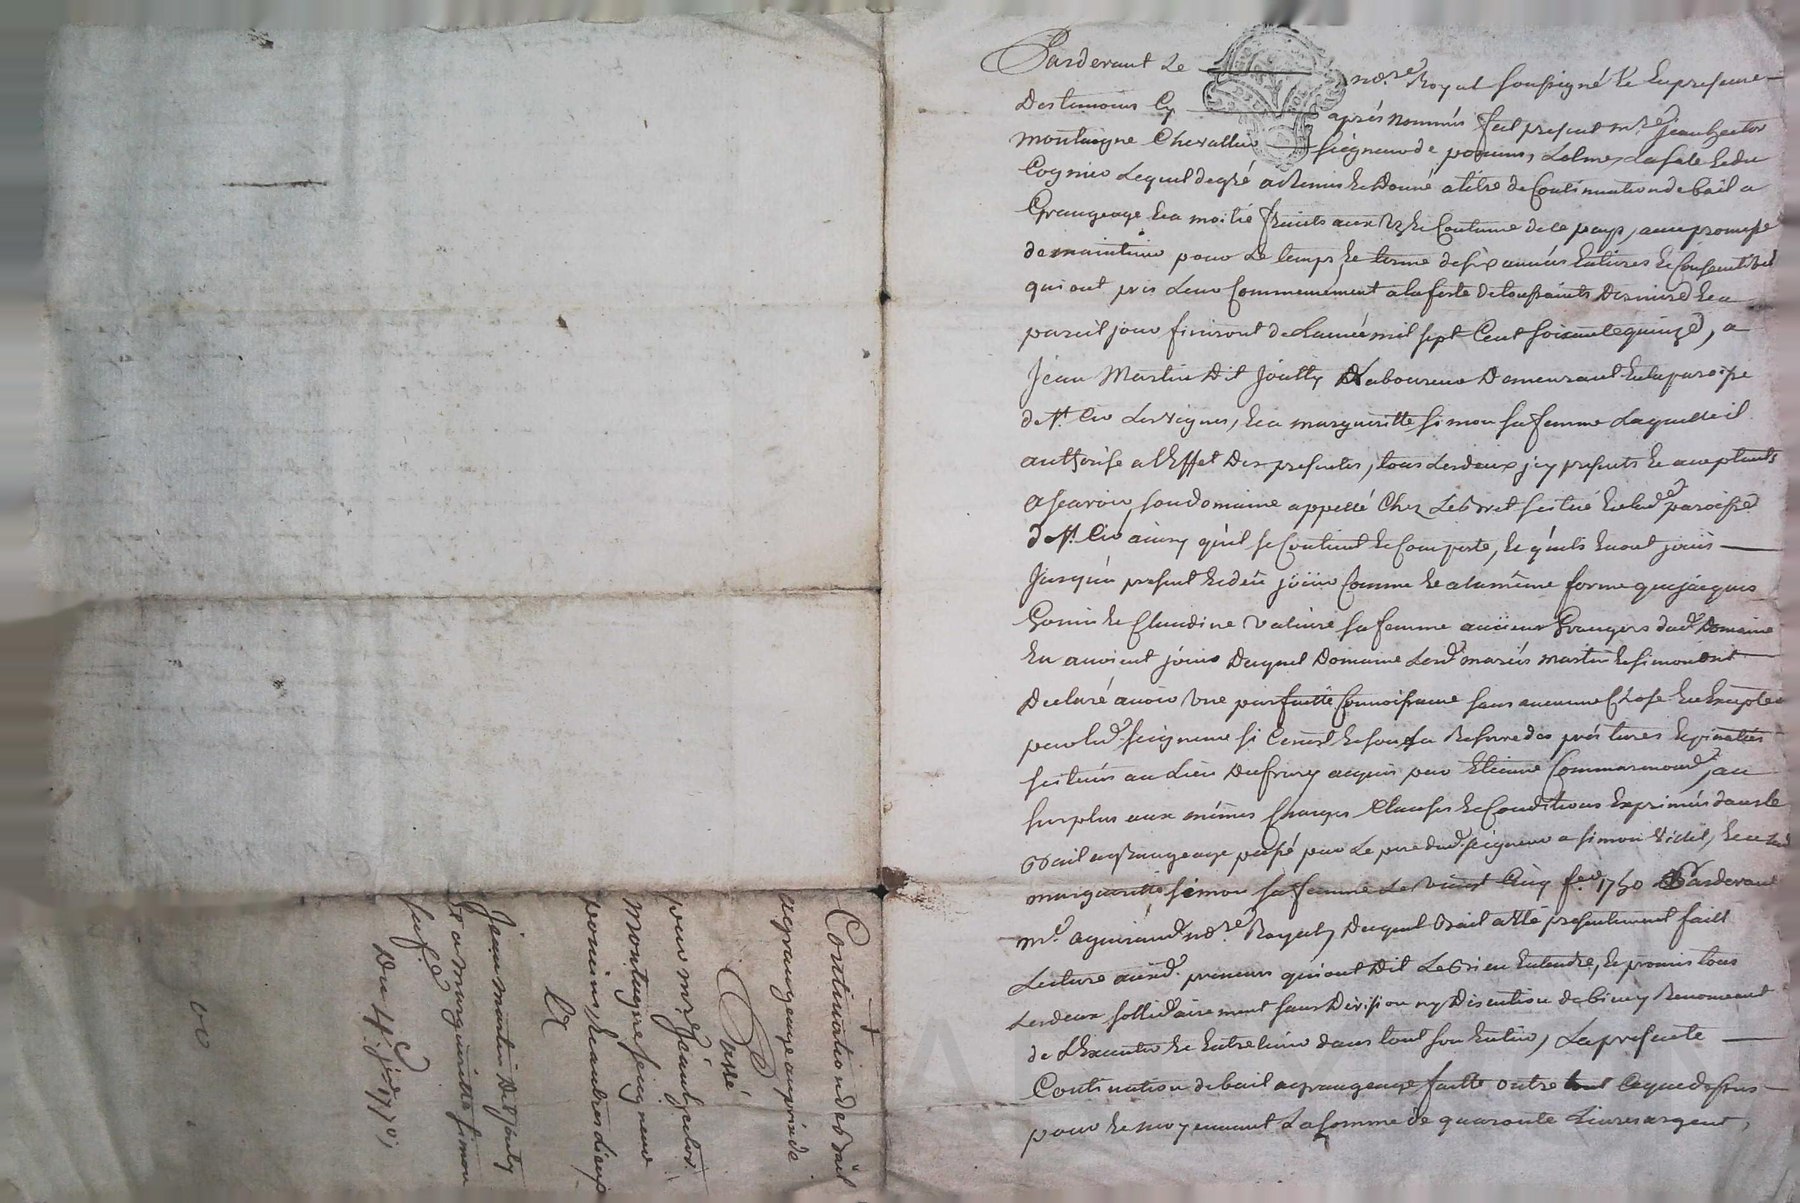 Pardevant Le no.re Royal soussigné Et En presence
Des temoins Cy aprés nommés fut present m.re Jean hector
montaigne Chevallier seigneur de poncins, L la sale Et du
Cognier Lequel de gré a remis Et Donné a titre de Continuation de bail a
Grangeage Et a moitié fruits aux Et Coutume de ce pays, avec promesse
de maintenir pour Le temps Et terme de six années Entieres Et Consecutives
qui ont pris Leur Commencement a la feste de toussaints Derniere Et a
pareil jour finiront de Lannée mil sept Cent soixante quinze, a
Jean Martin Dit Joutty Laboureur Demeurant En la paroisse
de st. Cir Les vignes, Et a margueritte simon sa femme Laquelle il
authorise a l'Effet Des presentes, tous Les deux icy presents Et acceptants
a scavoir son domaine appellé Chez Lebret scitué En lad.e paroisse
de st. Cir ainsy qu'il se Contient Et Comporte, Et qu'ils En ont joüis
Jusqu'a present Et deü joüir Comme Et a la même forme que jacques
Gonin Et Claudine valiere sa femme anciens Grangers dud. Domaine
En avoient joüis Duquel Domaine Lesd. mariés martin Et simon ont
Declaré avoir Une parfaitte Connoissance sans aucune Chose En Excepter
par led. seigneur si Ce n'est Et sous La Reserve des prés terres Et
scitués au Lieu Du acquis par Etienne Commarmond, au
surplus aux mêmes Charges Clauses Et Conditions Exprimés dans le
Bail a grangeage passé par Le pere dud. seigneur a simon Et a
margueritte simon sa femme Le vingt Cinq 1750 Pardevant
m.e no.re Royal, Duquel Bail a Eté presentement fait
Lecture auxd. preneurs qui ont Dit Le Bien Entendre, Et promis tous
Les deux sollidairement sans Division ny Discution de biens Renonceant
de L'Executer Et Entretenir dans tout son Entier, La presente
Continuation de bail a grangeage faitte outre Ce que dessus
pour Et moyennant La somme de quarante Livres argent,
Continuation de Bail
a grangeage au prix de
Passé
par m.re Jean hector
Montaigne seigneur
poncins, Et autres Lieux
A
Jean martin Dit Joutty
Et a margueritte simon
sa f.e
Du 4.e 1770,